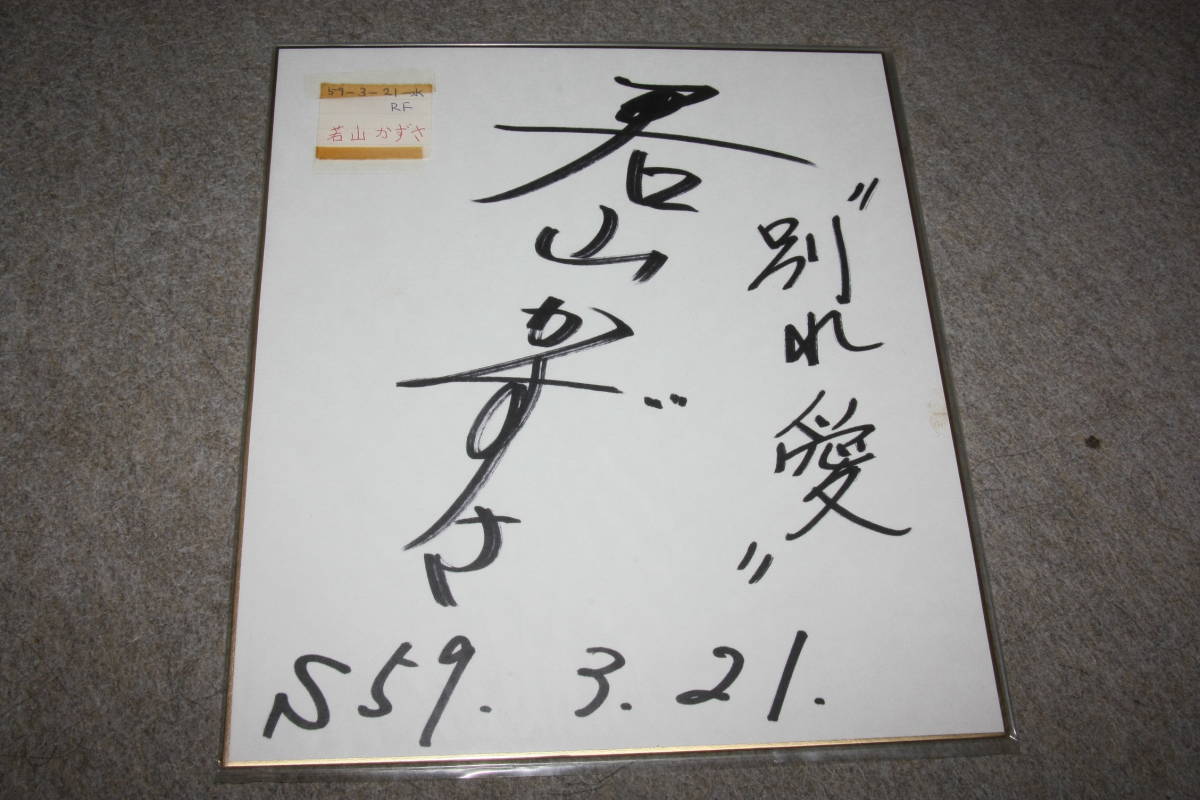 59-3-21-水
RF
若山かずさ
〝別れ愛〟
若山かずさ
S59.3.21.